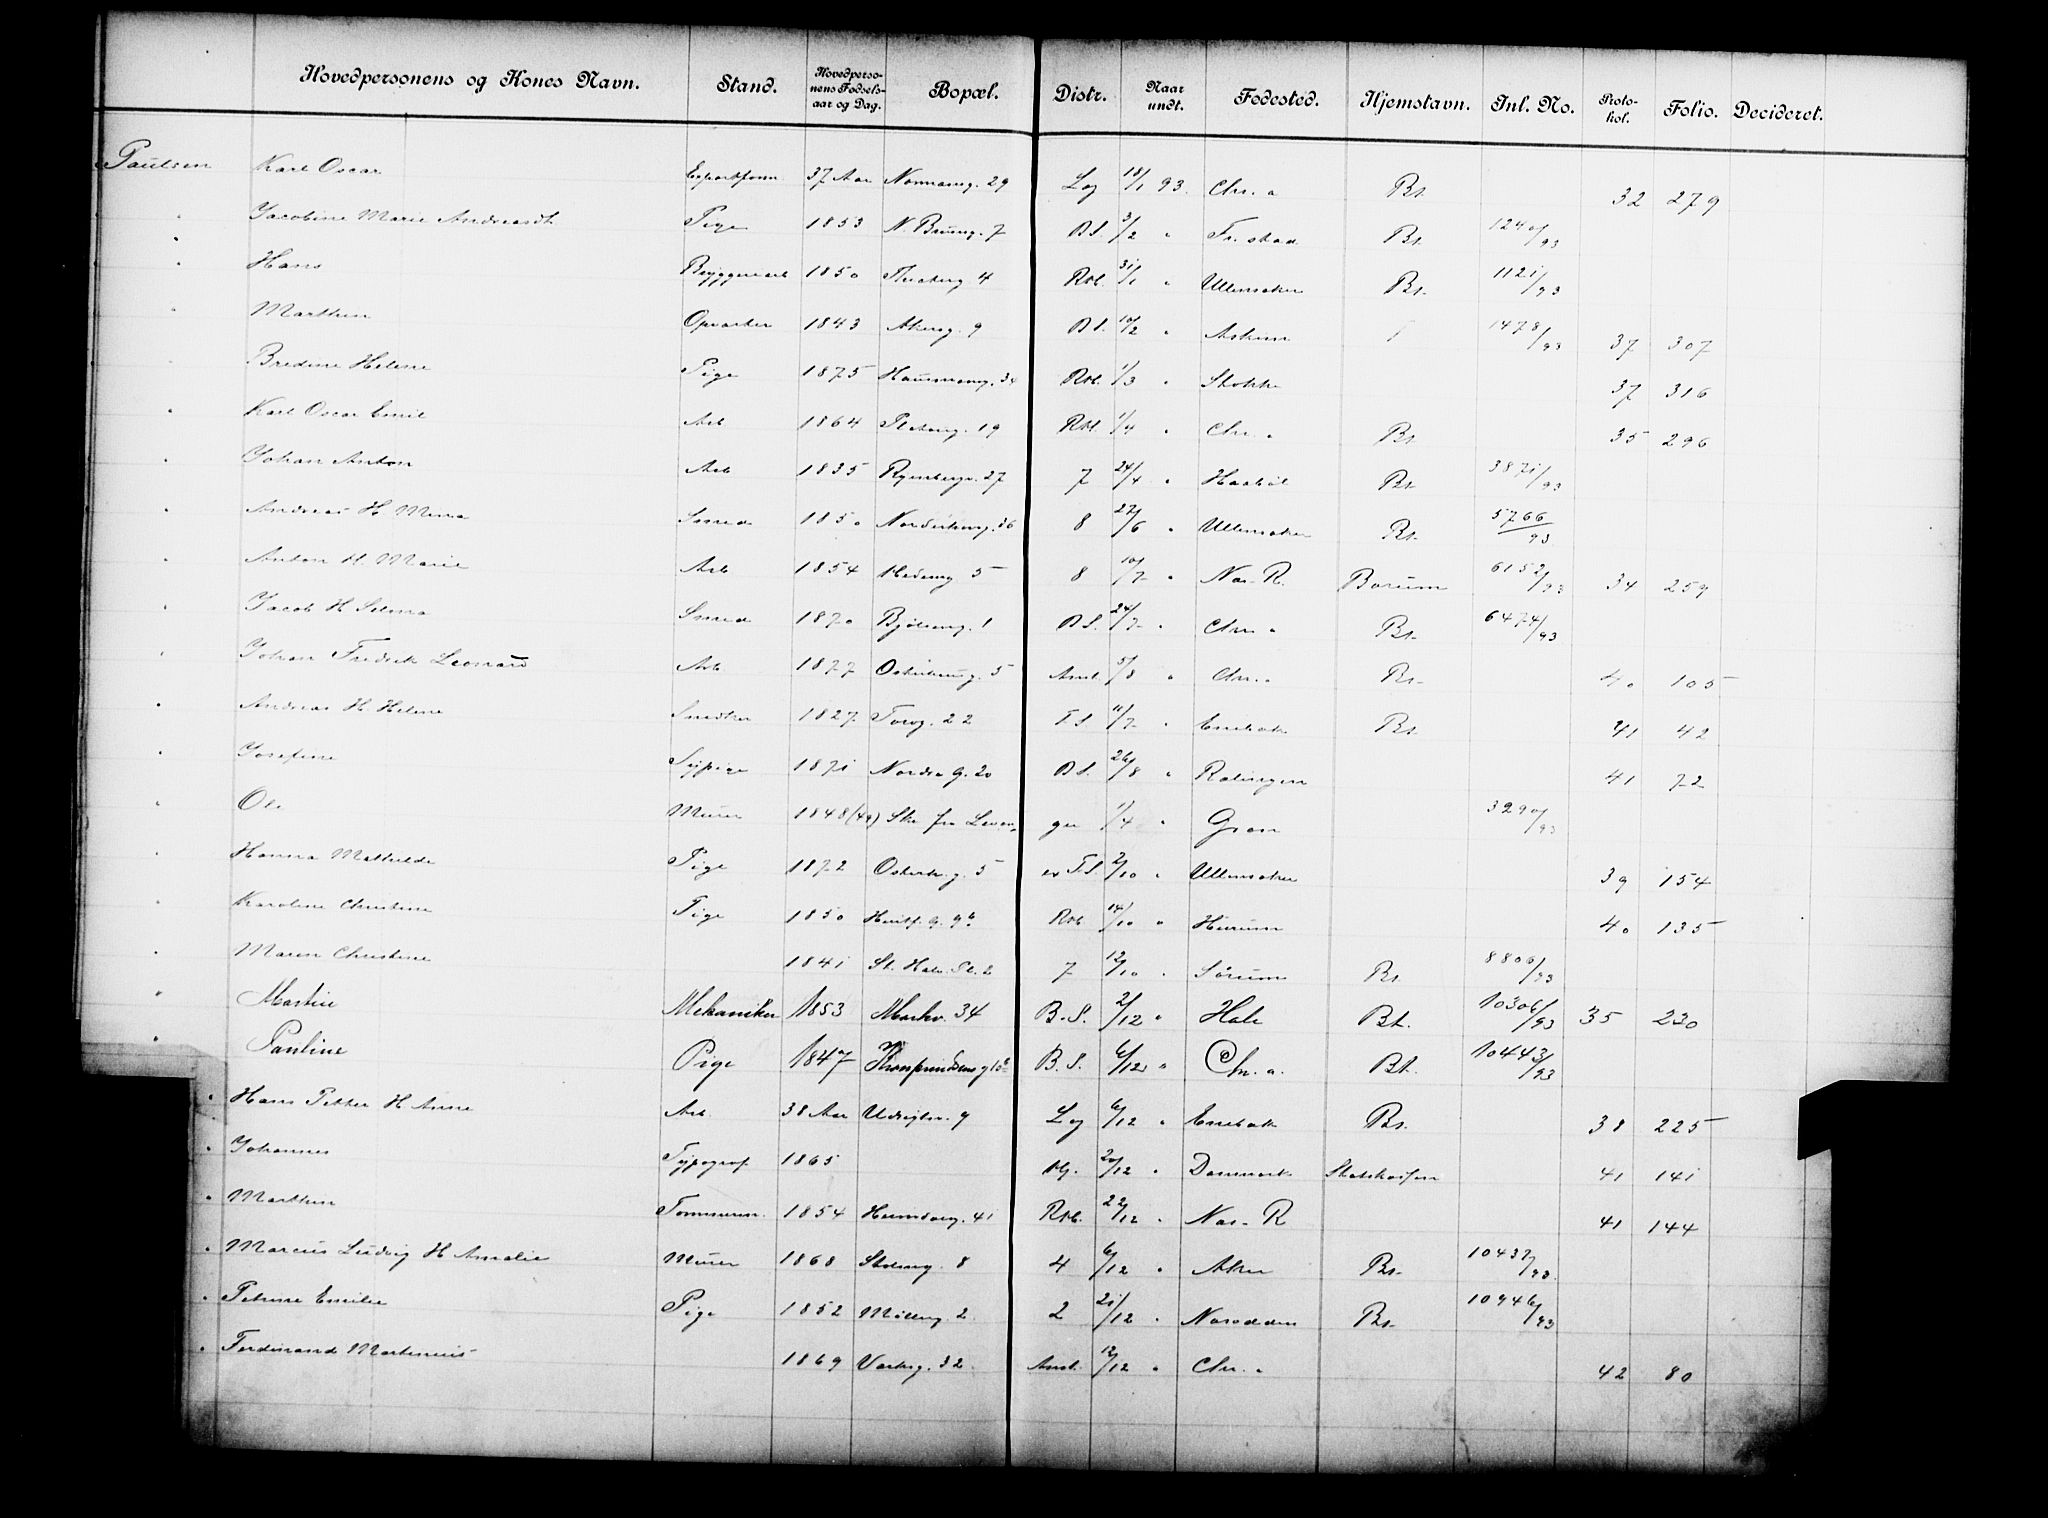 Hovedpersonens og Kones Navn. Stand. Hovedpersonens Fødselsaar og Dag. Bopæl. Distr. Naar undt. Fødested. Hjemstavn. Inl. No. Protokol. Folio. Decideret.
Paulsen Karl Oscar 37 Aar 29 Lg 18/1 93. Chr.a Bt. 32 279
" Jacobine Marie Pige 1853 7 B S. 3/2 " Fr. stad Bt. 1240/93
" Hans 1850 4 Rbl. 31/1 " Ullensaker Bt. 1121/93
" Marthin Opvarter 1843 Akersg. 9 B S. 10/2 " Askim 1478/93 37 307
" Bredine Helene Pige 1875 Hausmansg. 34 Rbl. 1/3 " Stokke 37 316
" Karl Oscar Emil Arb 1864 19 Rbl. 1/4 " Chr.a Bt. 35 296
" Johan Anton Arb 1835 27 7 24/4 " Haabøl Bt. 3871/93
" Andreas H. Smed 1850 36 8 27/6 " Ullensaker Bt. 5766/93
" Anton H. Marie Arb 1854 5 8 10/7 " Nes - R. Bærum 6152/93 34 259
" Jacob H Selma Smed 1870 Bjølseng. 1 B S. 24/7 " Chr.a Bt. 6474/93
" Johan Fredrik Leonard Arb. 1877 5 Amt. 5/8 " Chr.a Bt. 40 105
" Andreas H. Helene Snedker 1827 Torvg. 22 F. S. 11/7 " Enebak Bt. 41 42
" Josefine Sypige 1871 Nordre G. 20 B S. 26/8 " Rælingen 41 72
" Ole Murer 1848 (49) Skr fra Levanger 1/4 " Gran 3290/93
" Hanna Mathilde Pige 1872 5 F. S. 2/10 " Ullensaker 39 154
" Karoline Christine Pige 1850 G. 9b Rbl. 14/10 " Hurum 40 135
" Maren Christine 1841 St. Halv. Pl. 2 7 12/10 " Sørum Bt. 8806/93
" Martin Mekaniker 1853 Markv. 34 B. S. 2/12 " Hole Bt. 10306/93 35 230
" Pauline Pige 1847 B. S. 6/12 " Chr.a. Bt. 10443/93
" Hans Petter H Anne Arb. 38 Aar Udsigtsv. 9 Lg 6/12 " Enebak Bt. 38 225
" Johannes Typograf 1865 20/12 " Danmark Statskassen 41 141
" Marthin Tømmerm. 1854 Heimdalsg. 41 Rbl. 22/12 " Nes - R 41 144
" Marcus Ludvig H Amalie Murer 1868 8 4 6/12 " Aker Bt. 10437/93
" Petrine Emilie Pige 1852 Møllerg. 2 2 21/12 " Næsodden Bt. 10946/93
" Ferdinand Martinius 1869 32 Amt. 12/12 " Chr.a 42 80